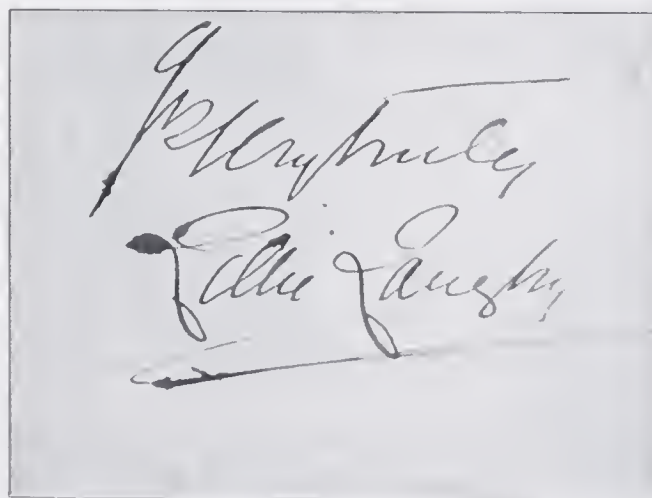 Yrs Very truly
Lillie Langtry